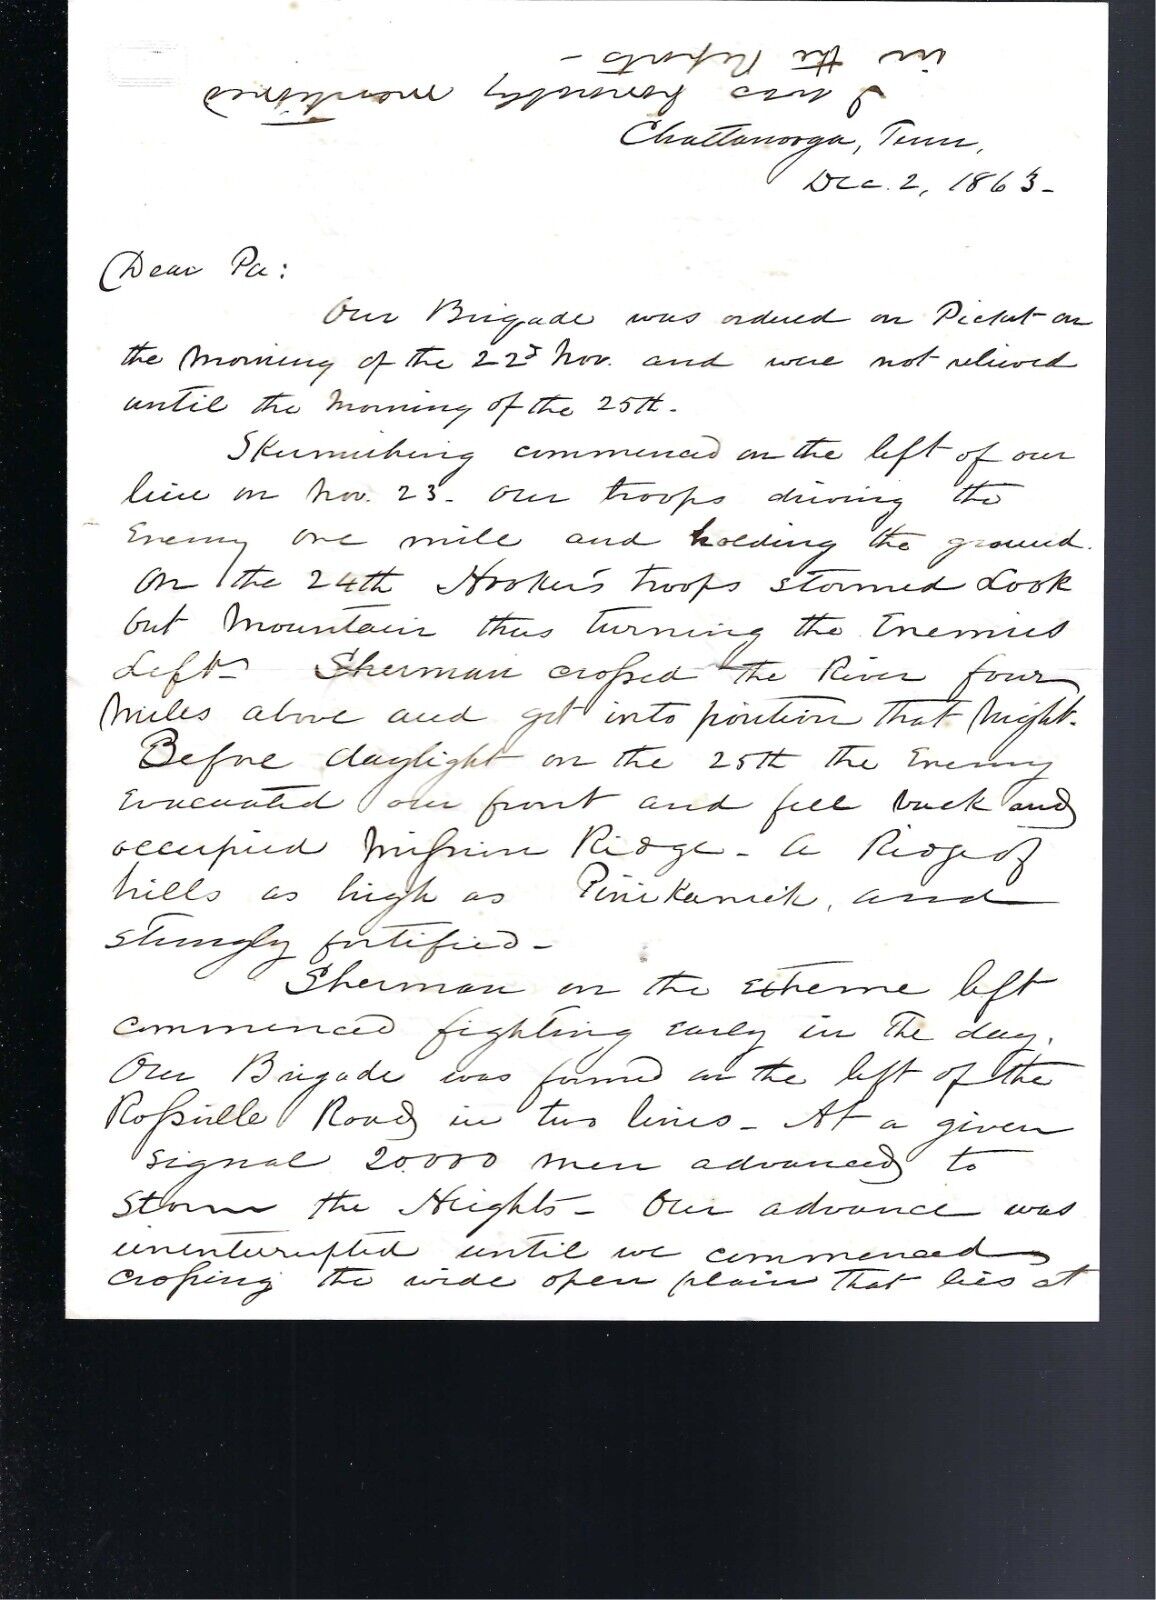 I was honorably mentioned
in the Reports -
Chattanooga, Tenn,
Dec. 2, 1863 -
Dear Pa:
Our Brigade was ordered on Picket on
the Morning of the 22d Nov. and were not relieved
until the Morning of the 25th -
Skirmishing commenced on the left of our
line on Nov. 23 - our troops driving the
Enemy one mile and holding the ground.
On the 24th Hooker's troops stormed Look
out Mountain thus turning the Enemies
Left - Sherman crossed the River four
Miles above and got into position that Night -
Before daylight on the 25th the Enemy
Evacuated our front and fell back and
occupied Mission Ridge - a Ridge of
hills as high as and
strongly fortified -
Sherman on the extreme left
commenced fighting early in the day.
Our Brigade was formed on the left of the
Rossville Road in two lines - At a given
signal 20.000 men advanced to
storm the Heights - Our advance was
uninterrupted until we commenced
crossing the wide open plain that lies at